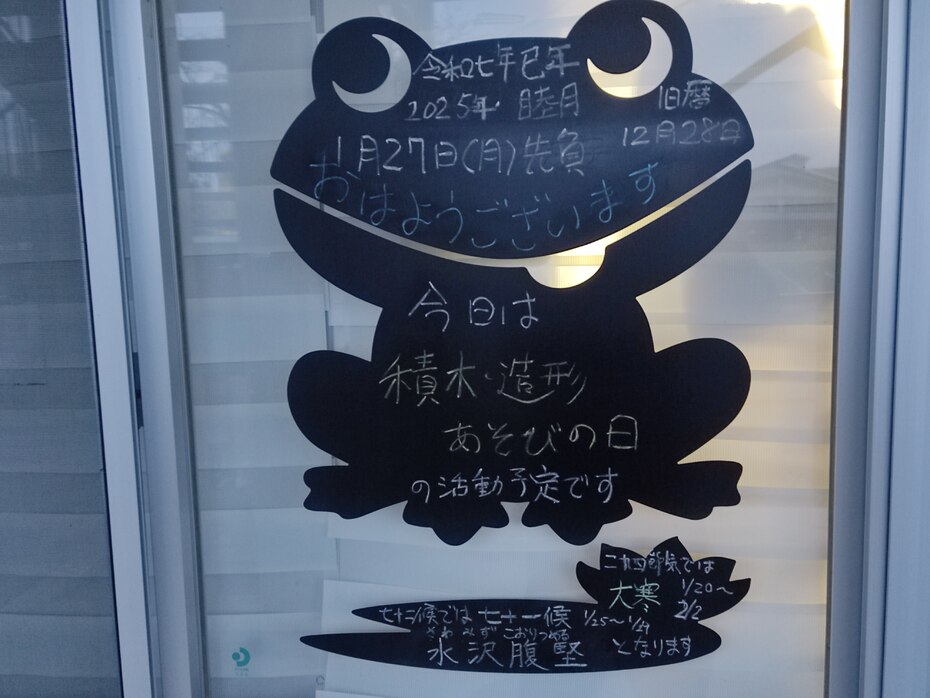 令和七年巳年
2025年 睦月
旧暦
12月28日
1月27日(月)先負
おはようございます
今日は
積木・造形
あそびの日
の活動予定です
二十四節気では
大寒 1/20～
2/2
七十二候では 七十一候 1/25～1/29
さわみずこおりつめる
水沢腹堅 となります